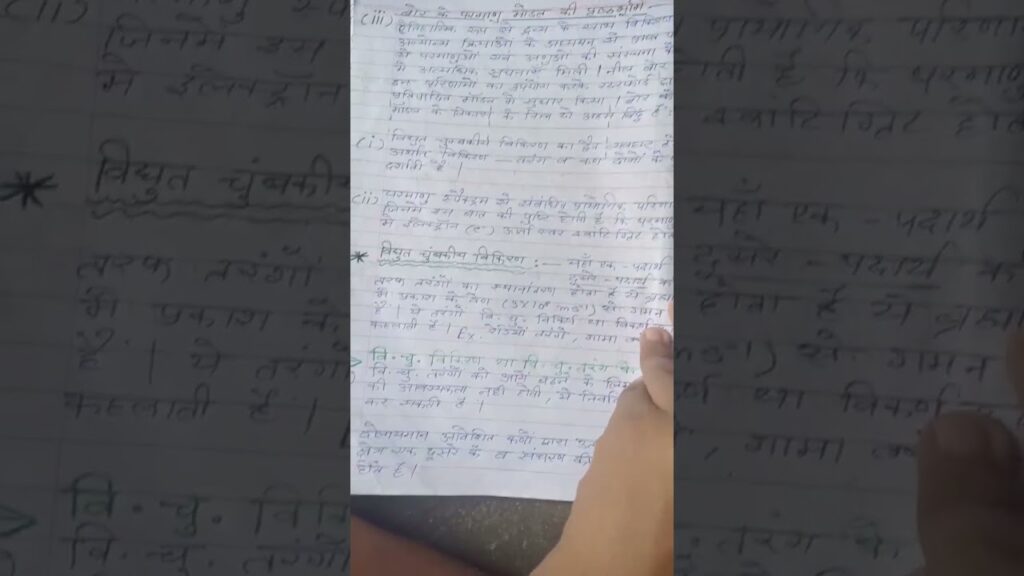 (iii) बोर के परमाणु मॉडल की पृष्ठभूमि -
ऐतिहासिक रूप से द्रव्य के साथ विकिरण
अन्योन्य क्रियाओं के अध्ययन से प्राप्त
से परमाणुओं एवं अणुओं की संरचना
में अत्यधिक सूचनाएं मिली। नील बोर
इन परिणामों का उपयोग करके रदरफोर्ड
प्रतिपादित मॉडल में सुधार किया। बोर के
मॉडल के विकास के लिए दो अहम बिंदु हैं:
(i) विद्युत चुम्बकीय विकिरण का द्वैत व्यवहार
अर्थात विकिरण तरंग व कण दोनों के
दर्शाती है।
(ii) परमाणु स्पेक्ट्रम से संबंधित प्रायोगिक परिणा
जिनमें इस बात की पुष्टि होती है कि परमाणु
में इलेक्ट्रॉन (e) ऊर्जा स्तर क्वांटिज्रेट होते
* विद्युत चुंबकीय विकिरण :— यहाँ एक - पदार्थ
दूसरे - पदार्थ
तरफ तरंगों का स्थानांतरण होता है ये
में प्रकाश के वेग (3x10⁸ ms⁻¹) से गमन
है। ये तरंगें वि. चु. विकिर्ण या विकर्ण
कहलाती है। Ex. रेडियो तरंगे, गामा
वि. चु. विकिरण या वि. चु. तरंग
वि. चु. तरंगों को आगे बढ़ने के लिए
की आवश्यकता नहीं होती, ये निर्वात
कर सकती है।
दोलायमान आवेशित कणों द्वारा
क्षेत्र एक दूसरे के व संचरण
होते हैं।